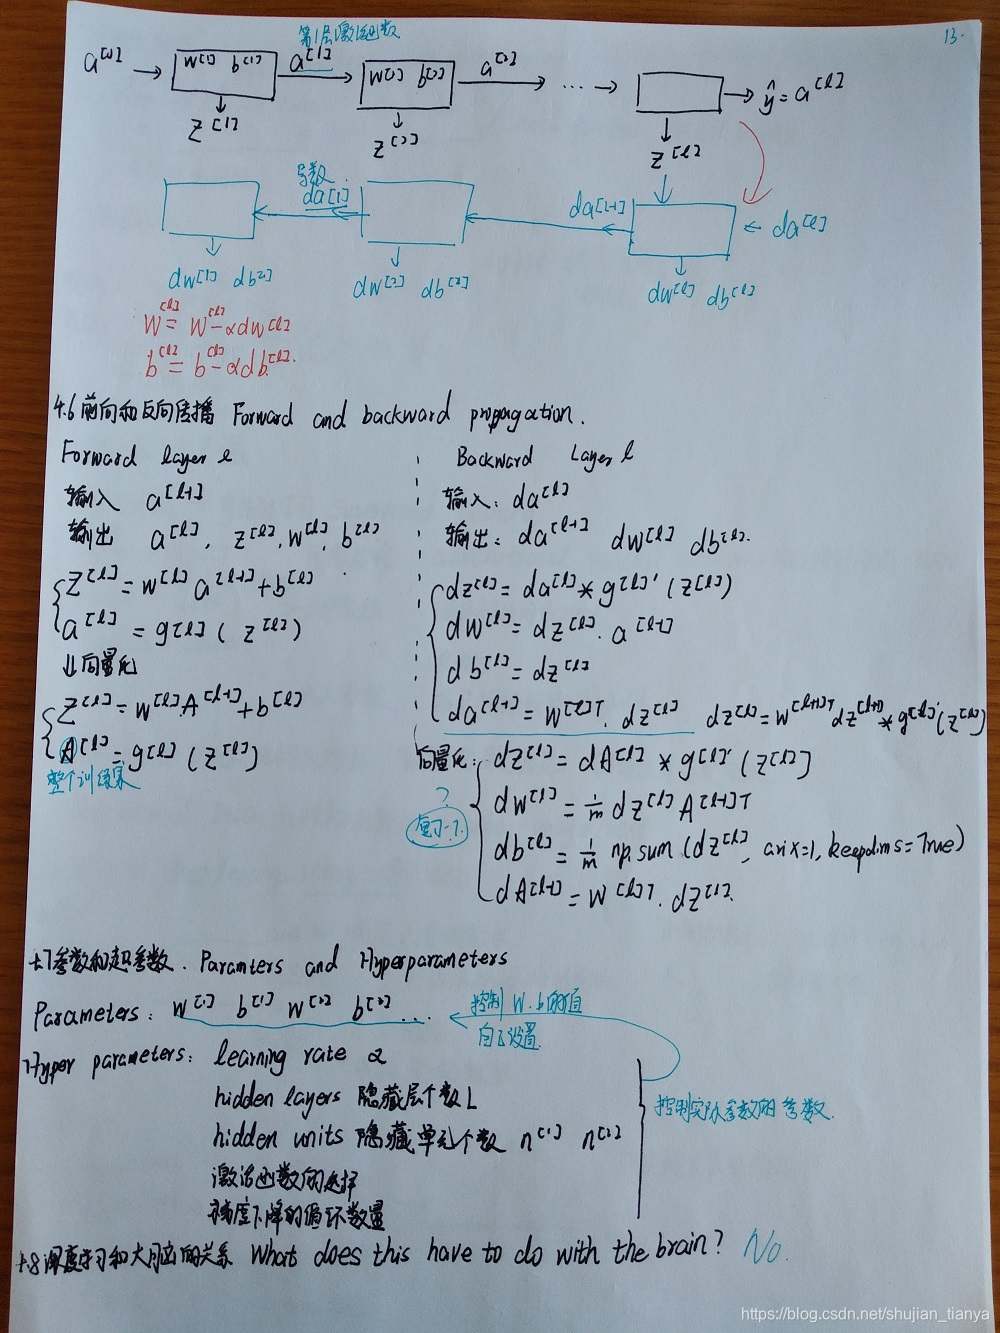 13.
第1层激活函数
a^[0] → w^[1] b^[1] a^[1] → w^[2] b^[2] a^[2] → ... → → ŷ = a^[l]
z^[1] z^[2] z^[l]
导数
da^[1] da^[l-1] ← da^[l]
dw^[1] db^[1] dw^[2] db^[2] dw^[l] db^[l]
w^[l] = w^[l] - αdw^[l]
b^[l] = b^[l] - αdb^[l].
4.6 前向和反向传播 Forward and backward propagation.
Forward layer l
输入 a^[l-1]
输出 a^[l], z^[l], w^[l], b^[l]
z^[l] = w^[l] a^[l-1] + b^[l]
a^[l] = g^[l] (z^[l])
↓向量化
Z^[l] = w^[l].A^[l-1] + b^[l]
A^[l] = g^[l] (Z^[l])
整个训练集
Backward Layer l
输入: da^[l]
输出: da^[l-1] dw^[l] db^[l].
dz^[l] = da^[l] * g^[l]' (z^[l])
dw^[l] = dz^[l] . a^[l-1]
db^[l] = dz^[l]
da^[l-1] = w^[l]T . dz^[l] dz^[l] = w^[l+1]T dz^[l+1] * g^[l]' (z^[l])
向量化: dZ^[l] = dA^[l] * g^[l]' (Z^[l])
?
复习一下
dw^[l] = 1/m dZ^[l] A^[l-1]T
db^[l] = 1/m np.sum (dZ^[l], axix=1, keepdims=True)
dA^[l-1] = w^[l]T . dZ^[l].
4.7 参数和超参数. Paramters and Hyperparameters
Parameters: w^[1] b^[1] w^[2] b^[2] ...
控制 w.b的值
自己设置
Hyper parameters: learning rate α
hidden layers 隐藏层个数 L
hidden units 隐藏单元个数 n^[1] n^[2]
激活函数的选择
梯度下降的循环数量
控制实际参数的参数.
4.8 深度学习和大脑的关系 What does this have to do with the brain? No.
https://blog.csdn.net/shujian_tianya